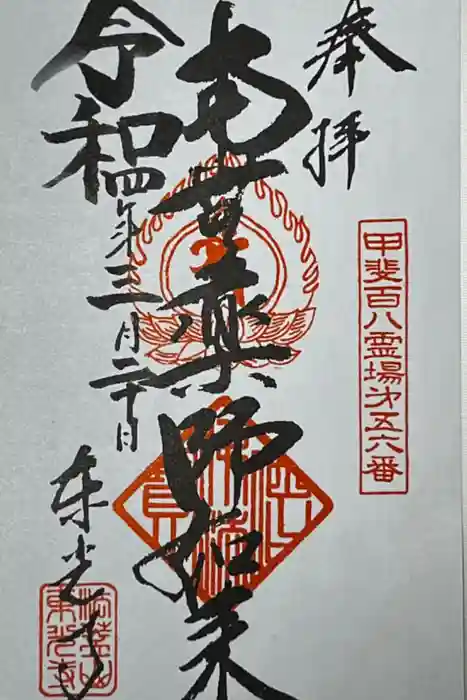 奉拝
甲斐百八霊場第五六番
南無薬師如来
令和四年三月二十日
東光寺
法蓋山
東光寺